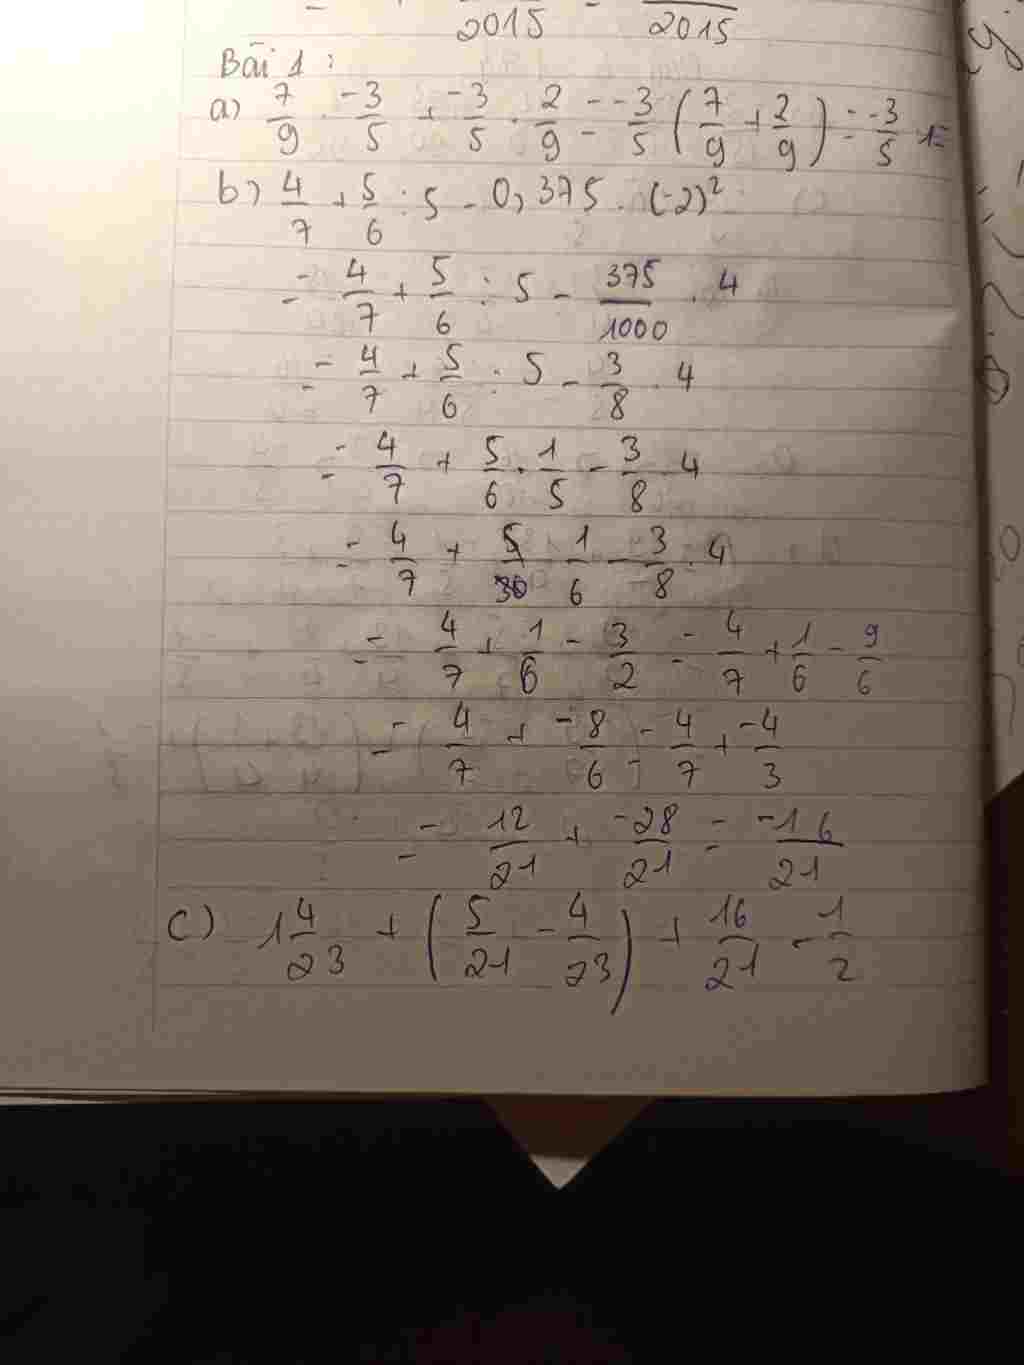 2015 - 2015
Bài 1 :
a) 7/9 . -3/5 + -3/5 . 2/9 = -3/5 (7/9 + 2/9) = -3/5 . 1 =
b) 4/7 + 5/6 : 5 - 0,375 . (-2)²
= 4/7 + 5/6 : 5 - 375/1000 . 4
= 4/7 + 5/6 : 5 - 3/8 . 4
= 4/7 + 5/6 . 1/5 - 3/8 . 4
= 4/7 + 5/30 1/6 - 3/8 . 4
= 4/7 + 1/6 - 3/2 = 4/7 + 1/6 - 9/6
= 4/7 + -8/6 = 4/7 + -4/3
= 12/21 + -28/21 = -16/21
c) 1 4/23 + (5/21 - 4/23) + 16/21 - 1/2